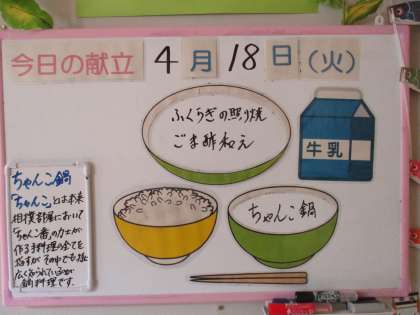 今日の献立 4月18日(火)
ふくらぎの照り焼
ごま酢和え
牛乳
ちゃんこ鍋
ちゃんこ鍋
「ちゃんこ」とは本来
相撲部屋において
「ちゃんこ番」の力士が
作る手料理の全てを
指すが その中でも
広く知られているのが
鍋料理です。